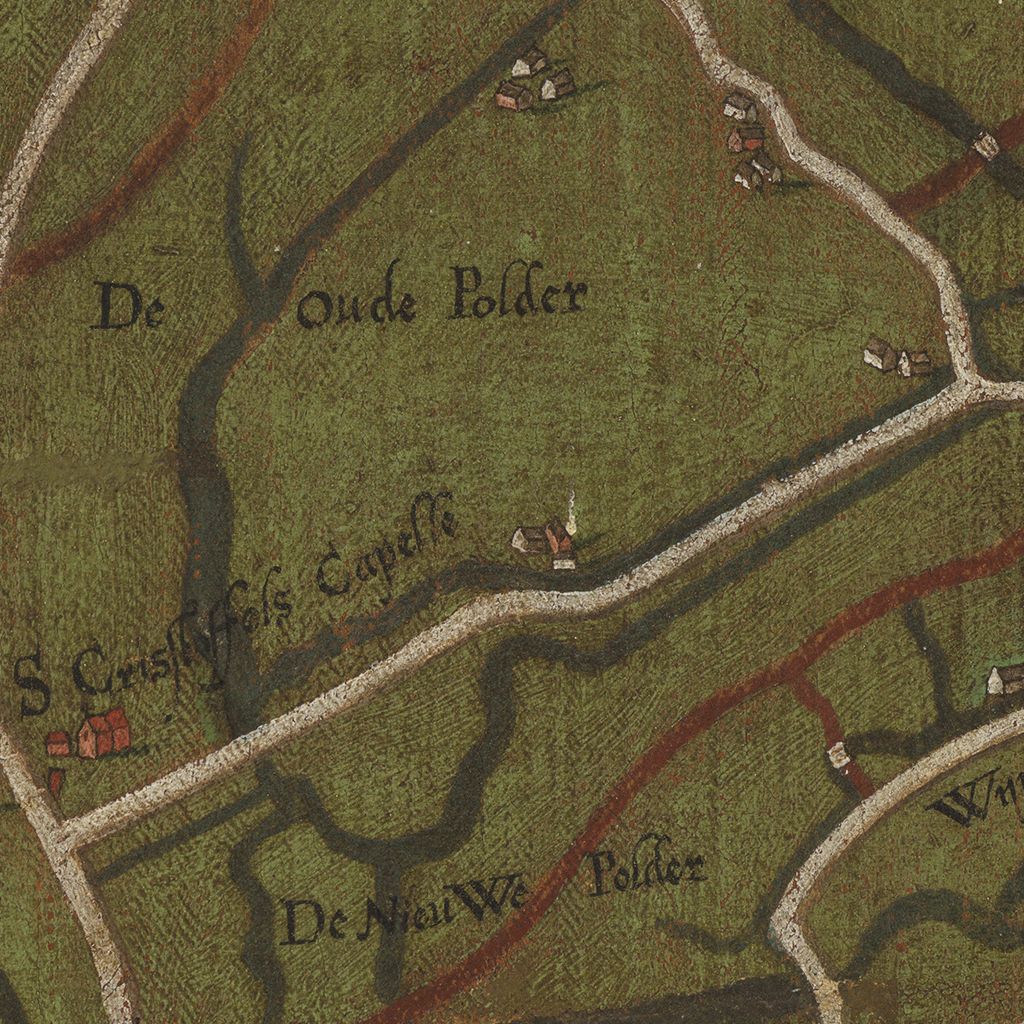 De Oude Polder
S Cristoffels Capelle
De NieuWe Polder